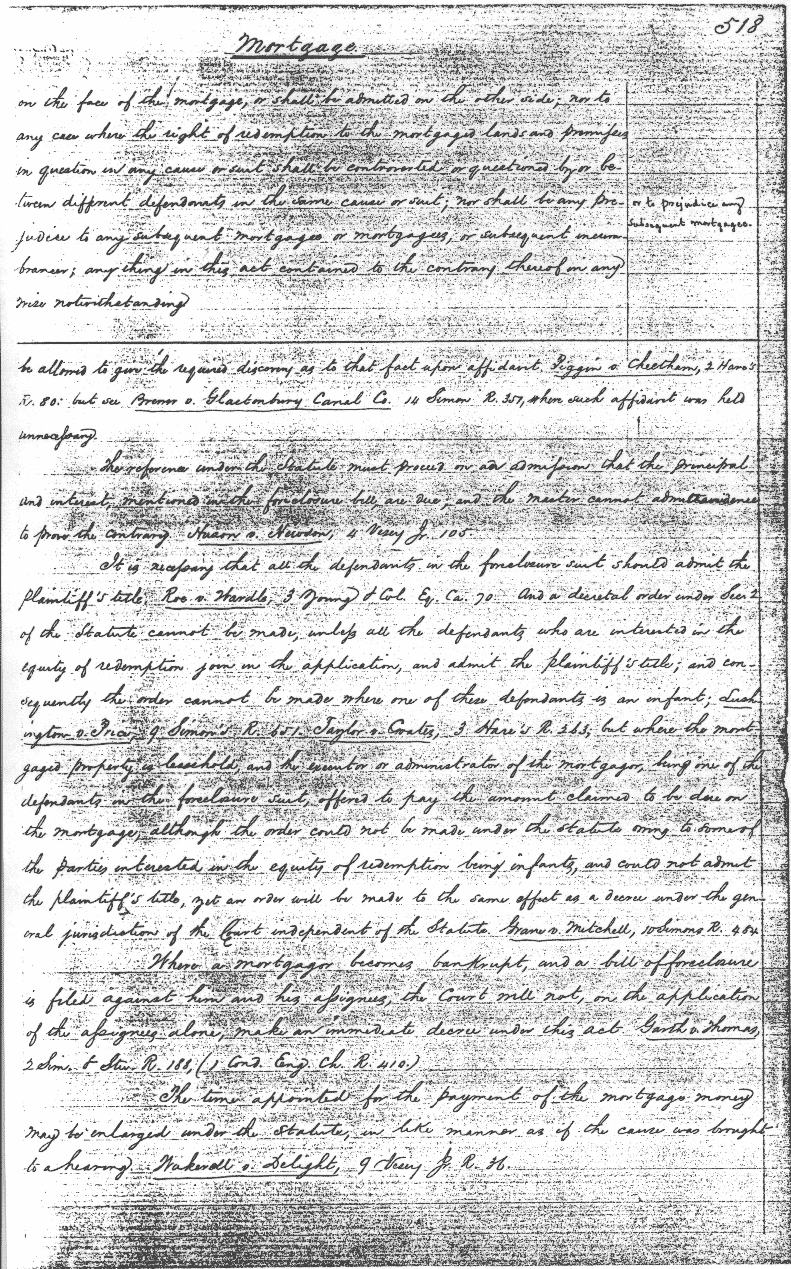 518
Mortgage.
on the face of the mortgage, or shall be admitted on the other side; nor to
any case where the right of redemption to the mortgaged lands and premises
in question in any cause or suit shall be controverted or questioned by or be-
tween different defendants in the same cause or suit; nor shall be any pre-
judice to any subsequent mortgage or mortgagees, or subsequent incum
brancer; any thing in this act contained to the contrary thereof in any
wise notwithstanding
or to prejudice any
subsequent mortgagee.
be allowed to give the required discovery as to that fact upon affidavit. Piggin v. Cheetham, 2 Hare's
R. 80: but see Brown v. Glastonbury Canal Co. 14 Simon R. 351, where such affidavit was held
unnecessary.
The reference under the Statute must proceed on an admission that the principal
and interest, mentioned in the foreclosure bill, are due, and the master cannot admit evidence
to prove the contrary. Huson v. Hewson, 4 Vesey Jr. 105
It is necessary that all the defendants in the foreclosure suit should admit the
plaintiff's title, Roe v. Wardle, 3 Young & Col. Eq. Ca. 70. And a decretal order under Sec. 2
of the Statute cannot be made, unless all the defendants who are interested in the
equity of redemption join in the application, and admit the plaintiff's title; and con-
sequently the order cannot be made where one of these defendants is an infant; Lush
ington v. Price, 9 Simon's R. 651. Taylor v. Coates, 3 Hare's R. 263; but where the mort-
gaged property is leasehold, and the executor or administrator of the mortgagor, being one of the
defendants in the foreclosure suit, offered to pay the amount claimed to be due on
the mortgage, although the order could not be made under the Statute owing to some of
the parties interested in the equity of redemption being infants, and could not admit
the plaintiff's title, yet an order will be made to the same effect as a decree under the gen-
eral jurisdiction of the Court independent of the Statute. v. Mitchell, 10 R. 484
Where a mortgagor becomes bankrupt, and a bill of foreclosure
is filed against him and his assignees, the Court will not, on the application
of the assignees alone, make an immediate decree under this act. Garth v. Thomas,
2 Sim. & Stu. R. 188, (1 Cond. Eng. Ch. R. 410.)
The time appointed for the payment of the mortgage money
may be enlarged under the Statute, in like manner as if the cause was brought
to a hearing. Wakerell v. Delight, 9 Vesey Jr. R. 36.